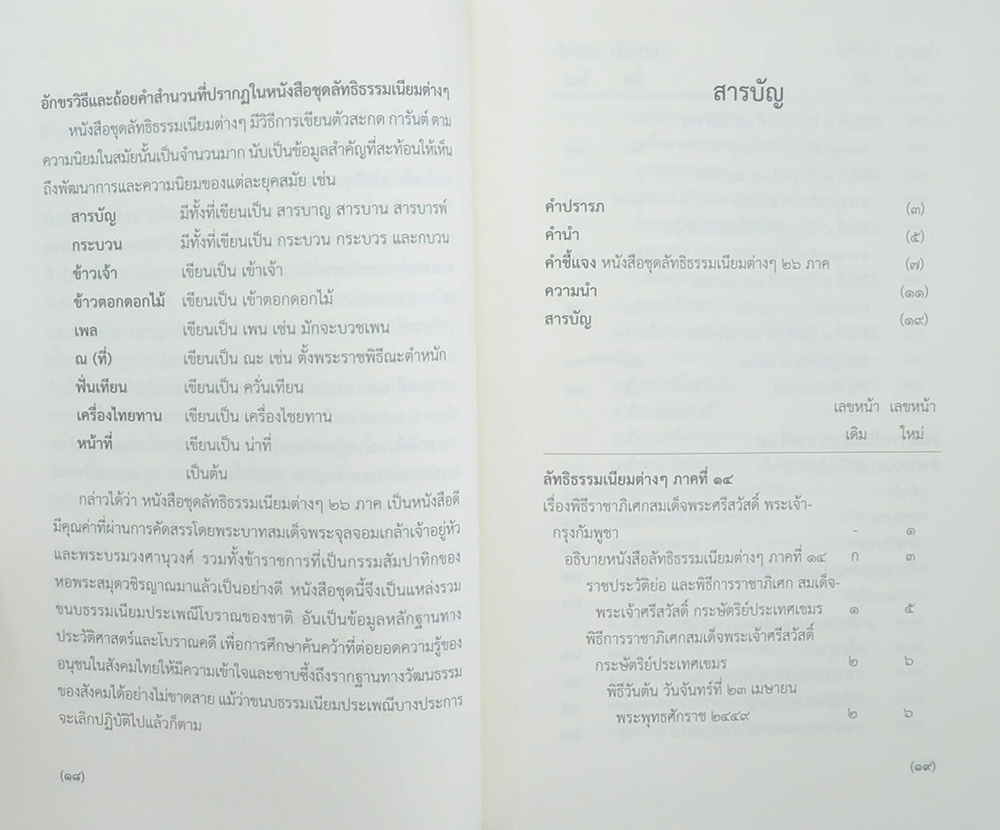 อักขรวิธีและถ้อยคำสำนวนที่ปรากฏในหนังสือชุดลัทธิธรรมเนียมต่างๆ
หนังสือชุดลัทธิธรรมเนียมต่างๆ มีวิธีการเขียนตัวสะกด การันต์ ตาม
ความนิยมในสมัยนั้นเป็นจำนวนมาก นับเป็นข้อมูลสำคัญที่สะท้อนให้เห็น
ถึงพัฒนาการและความนิยมของแต่ละยุคสมัย เช่น
สารบัญ มีทั้งที่เขียนเป็น สารบาญ สารบาน สารบารพ์
กระบวน มีทั้งที่เขียนเป็น กระบวน กระบวร และกบวน
ข้าวเจ้า เขียนเป็น เข้าเจ้า
ข้าวตอกดอกไม้ เขียนเป็น เข้าตอกดอกไม้
เพล เขียนเป็น เพน เช่น มักจะบวชเพน
ณ (ที่) เขียนเป็น ณะ เช่น ตั้งพระราชพิธีณะตำหนัก
ฟั่นเทียน เขียนเป็น ควั่นเทียน
เครื่องไทยทาน เขียนเป็น เครื่องไชยทาน
หน้าที่ เขียนเป็น น่าที่
เป็นต้น
กล่าวได้ว่า หนังสือชุดลัทธิธรรมเนียมต่างๆ ๒๖ ภาค เป็นหนังสือดี
มีคุณค่าที่ผ่านการคัดสรรโดยพระบาทสมเด็จพระจุลจอมเกล้าเจ้าอยู่หัว
และพระบรมวงศานุวงศ์ รวมทั้งข้าราชการที่เป็นกรรมสัมปาทิกของ
หอพระสมุดวชิรญาณมาแล้วเป็นอย่างดี หนังสือชุดนี้จึงเป็นแหล่งรวม
ขนบธรรมเนียมประเพณีโบราณของชาติ อันเป็นข้อมูลหลักฐานทาง
ประวัติศาสตร์และโบราณคดี เพื่อการศึกษาค้นคว้าที่ต่อยอดความรู้ของ
อนุชนในสังคมไทยให้มีความเข้าใจและซาบซึ้งถึงรากฐานทางวัฒนธรรม
ของสังคมได้อย่างไม่ขาดสาย แม้ว่าขนบธรรมเนียมประเพณีบางประการ
จะเลิกปฏิบัติไปแล้วก็ตาม
(๑๘)
สารบัญ
คำปรารภ (๓)
คำนำ (๕)
คำชี้แจง หนังสือชุดลัทธิธรรมเนียมต่างๆ ๒๖ ภาค (๗)
ความนำ (๑๑)
สารบัญ (๑๙)
เลขหน้า เลขหน้า
เดิม ใหม่
ลัทธิธรรมเนียมต่างๆ ภาคที่ ๑๔
เรื่องพิธีราชาภิเศกสมเด็จพระศรีสวัสดิ์ พระเจ้า-
กรุงกัมพูชา - ๑
อธิบายหนังสือลัทธิธรรมเนียมต่างๆ ภาคที่ ๑๔ ก ๓
ราชประวัติย่อ และพิธีการราชาภิเศก สมเด็จ-
พระเจ้าศรีสวัสดิ์ กระษัตริย์ประเทศเขมร ๑ ๕
พิธีการราชาภิเศกสมเด็จพระเจ้าศรีสวัสดิ์
กระษัตริย์ประเทศเขมร ๒ ๖
พิธีวันต้น วันจันทร์ที่ ๒๓ เมษายน
พระพุทธศักราช ๒๔๔๙ ๒ ๖
(๑๙)